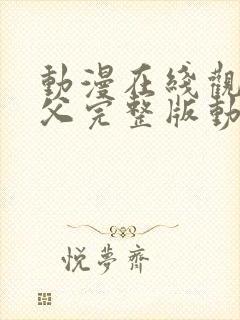 動漫在綫觀
父完整版動
悅夢齋